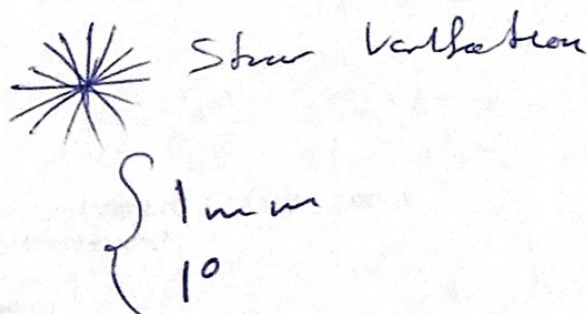 Star Verification
1 mm
1°